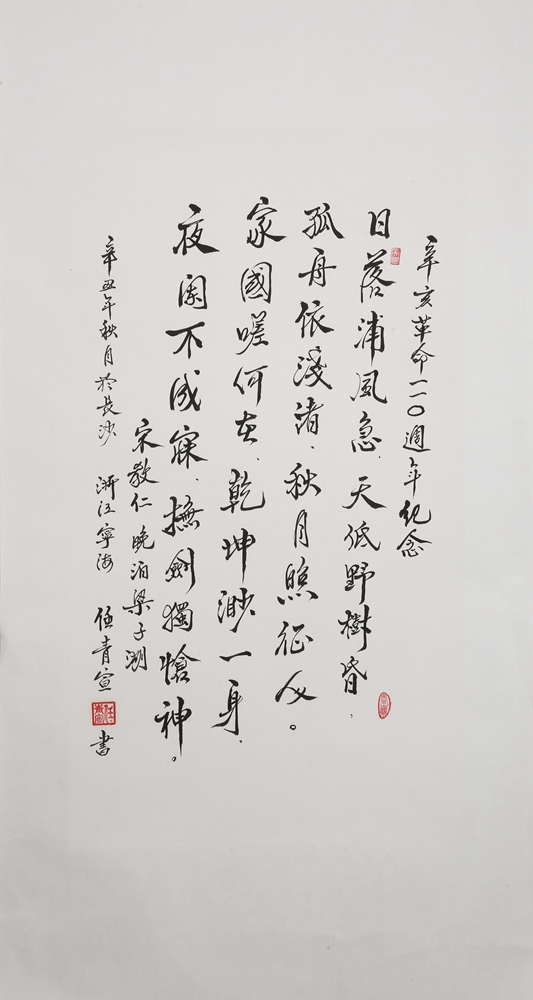 辛亥革命一一〇週年纪念
日落浦風急、天低野樹昏、
孤舟依淺渚、秋月照征人。
家國嗟何在、乾坤渺一身、
夜闌不成寐、撫劍獨愴神。
宋教仁晚泊梁子湖
辛丑年秋月於長沙 浙江寧海 任青宣 書